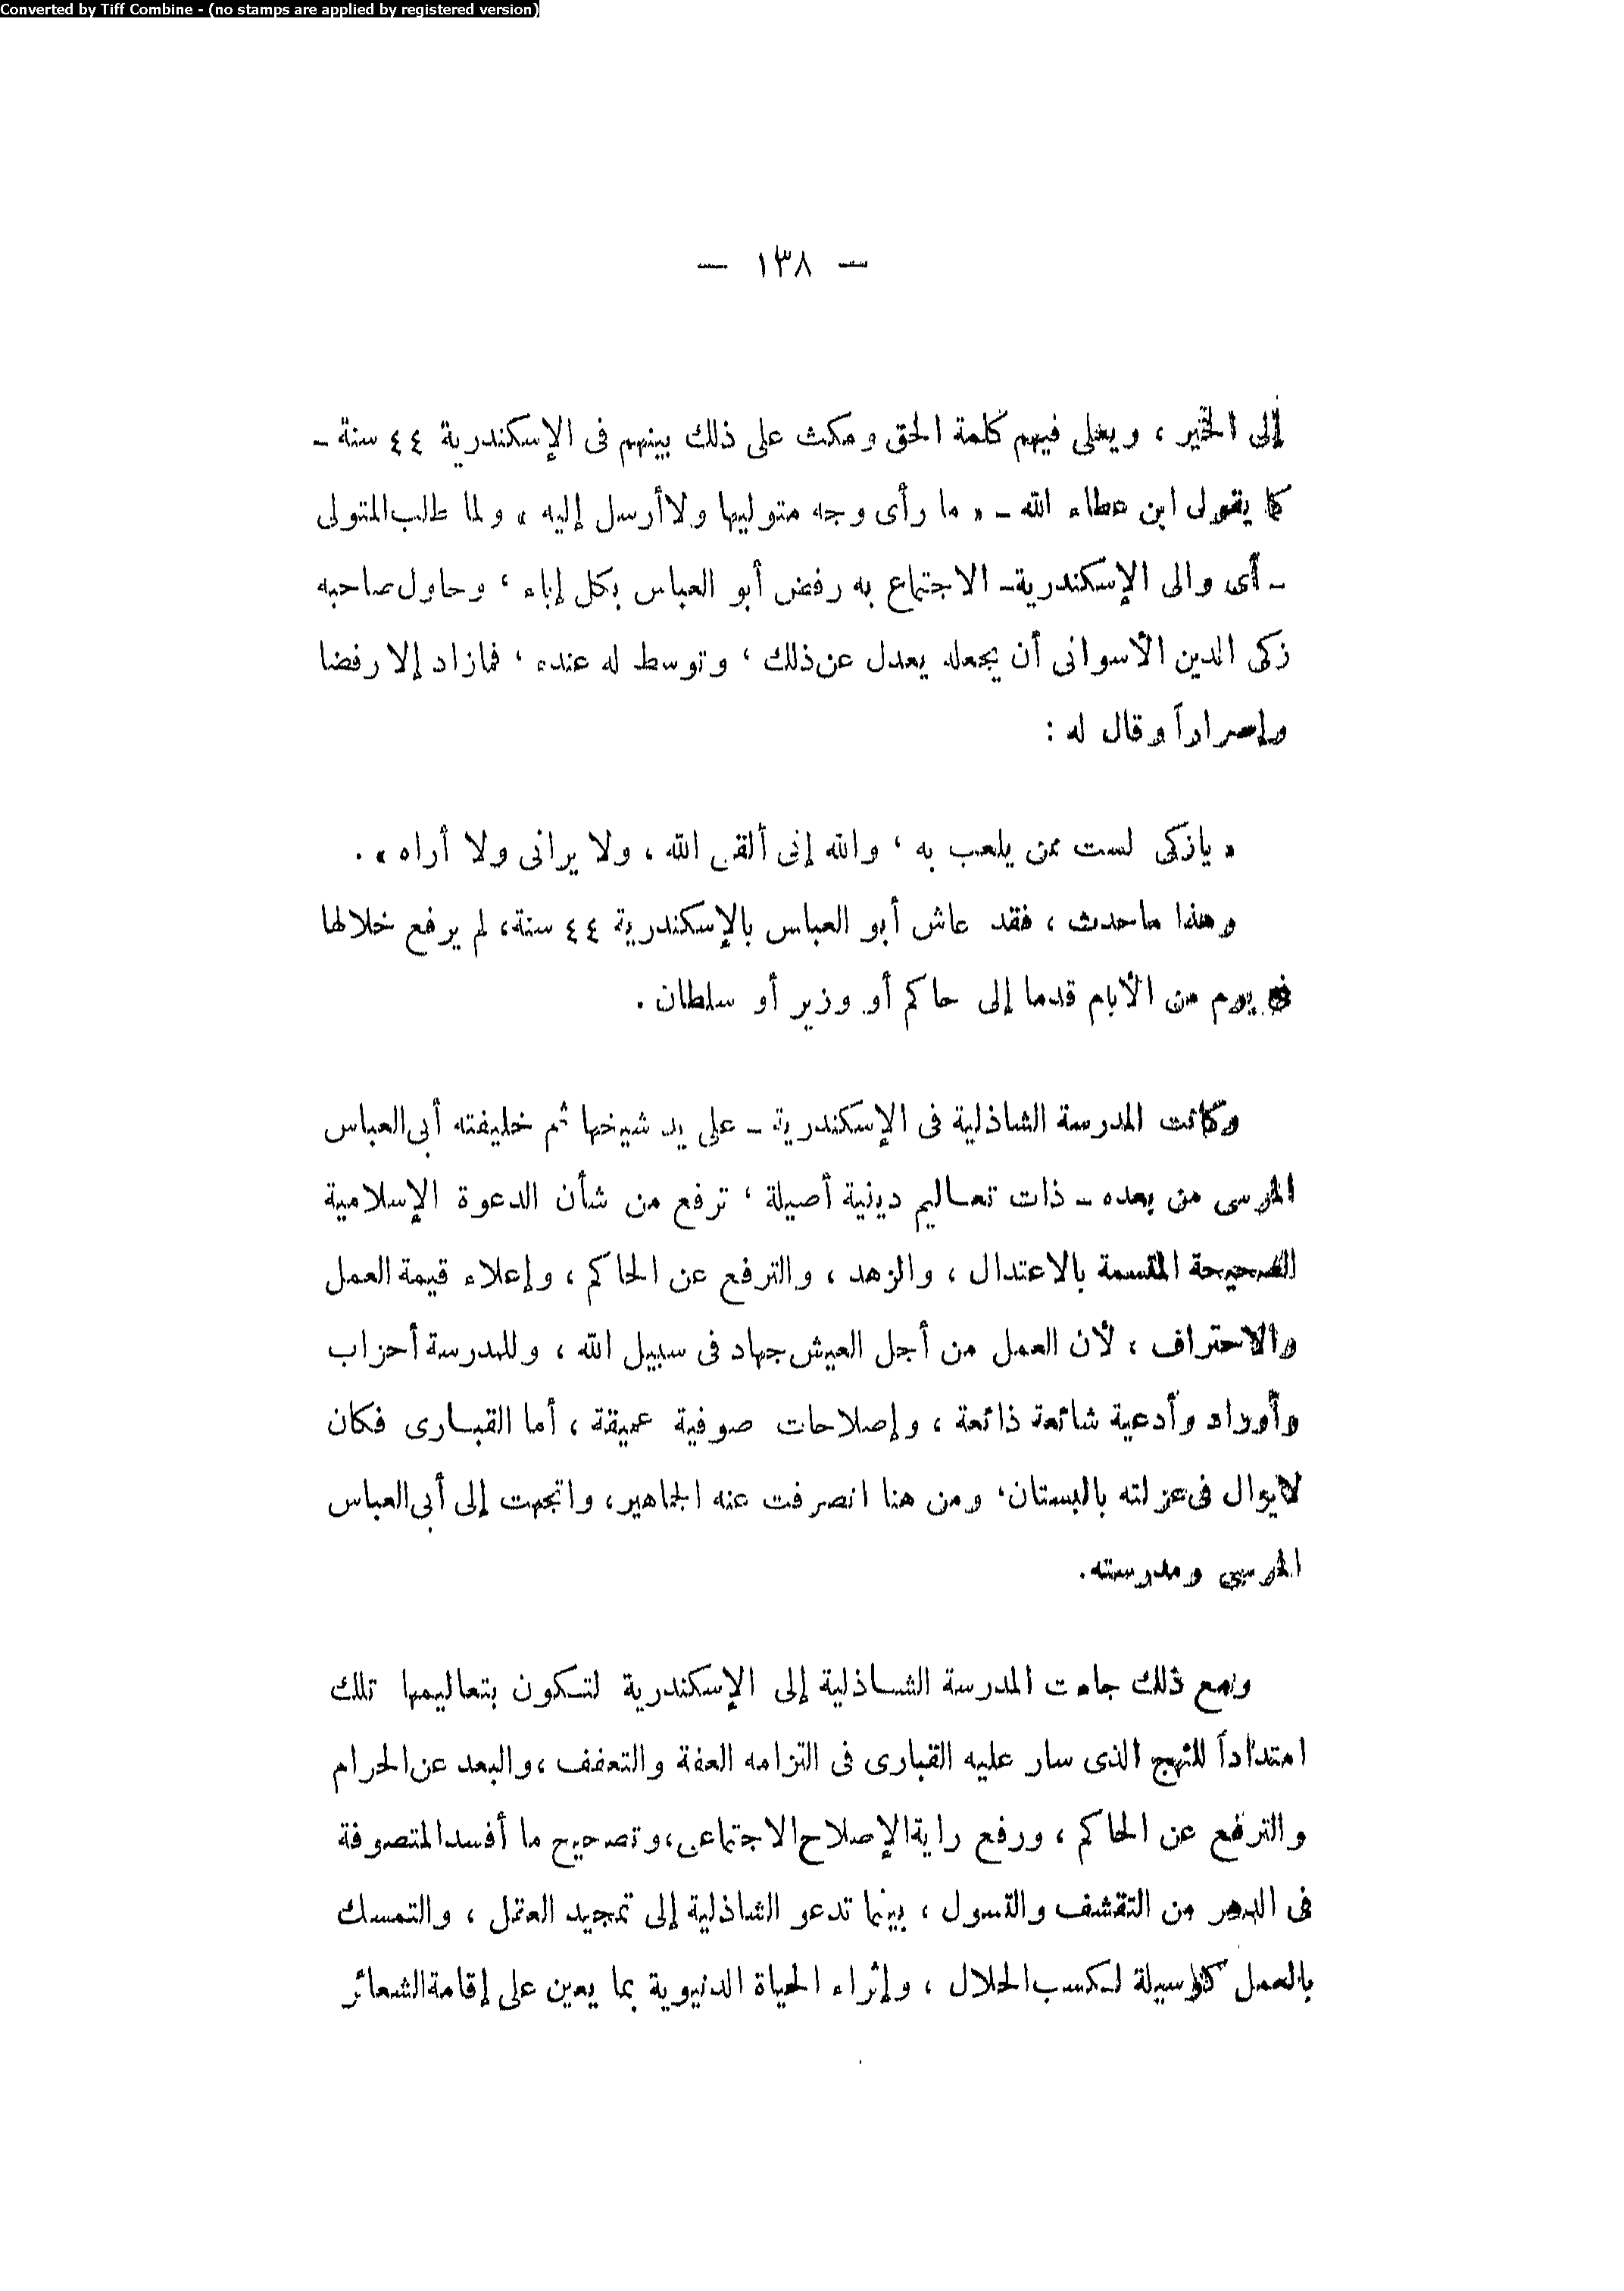 Converted by Tiff Combine - (no stamps are applied by registered version)
— ١٣٨ —
إلى الخير ، ويعلى فيهم كلمة الحق ومكث على ذلك بينهم فى الإسكندرية ٤٤ سنة –
كما يقول ابن عطاء الله – « ما رأى وجه متوليها ولا أرسل إليه » ولما طلب المتولى
– أى والى الإسكندرية – الاجتماع به رفض أبو العباس بكل إباء ، وحاول صاحبه
زكى الدين الأسوانى أن يجعله يعدل عن ذلك ، وتوسط له عنده ، فمازاد إلا رفضا
وإصراراً وقال له :
« يازكى لست ممن يلعب به ، والله إنى ألقى الله ، ولا يرانى ولا أراه » .
وهذا ماحدث ، فقد عاش أبو العباس بالإسكندرية ٤٤ سنة ، لم يرفع خلالها
فى يوم من الأيام قدما إلى حاكم أو وزير أو سلطان .
وكانت المدرسة الشاذلية فى الإسكندرية – على يد شيخها ثم خليفته أبى العباس
المرسى من بعده – ذات تعاليم دينية أصيلة ، ترفع من شأن الدعوة الإسلامية
الصحيحة المتسمة بالاعتدال ، والزهد ، والترفع عن الحاكم ، وإعلاء قيمة العمل
والاحتراف ، لأن العمل من أجل العيش جهاد فى سبيل الله ، وللمدرسة أحزاب
وأوراد وأدعية شائعة ذائعة ، وإصلاحات صوفية عميقة ، أما القبارى فكان
لايزال فى عزلته بالبستان ، ومن هنا انصرفت عنه الجماهير ، واتجهت إلى أبى العباس
المرسى ومدرسته .
ومع ذلك جاءت المدرسة الشاذلية إلى الإسكندرية لتكون بتعاليمها تلك
امتداداً للنهج الذى سار عليه القبارى فى التزامه العفة والتعفف ، والبعد عن الحرام
والترفع عن الحاكم ، ورفع راية الإصلاح الاجتماعى ، وتصحيح ما أفسد المتصوفة
فى الدهر من التقشف والتسول ، بينما تدعو الشاذلية إلى تمجيد العقل ، والتمسك
بالعمل كوسيلة لكسب الحلال ، وإثراء الحياة الدنيوية بما يعين على إقامة الشعائر